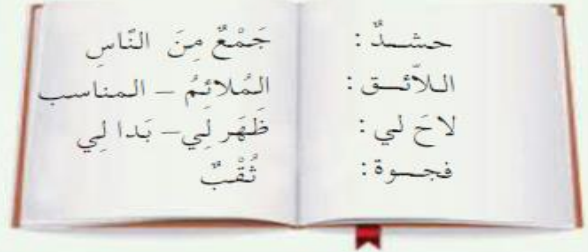 حشدٌ : جَمْعٌ مِنَ النّاسِ
اللاّئق : المُلائِمُ – المناسب
لاحَ لي : ظَهَر لِي – بَدا لِي
فجوة : ثُقْبٌ